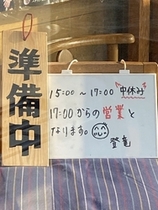 準備中
15:00 〜 17:00 中休み
17:00 からの営業と
なります。
登竜